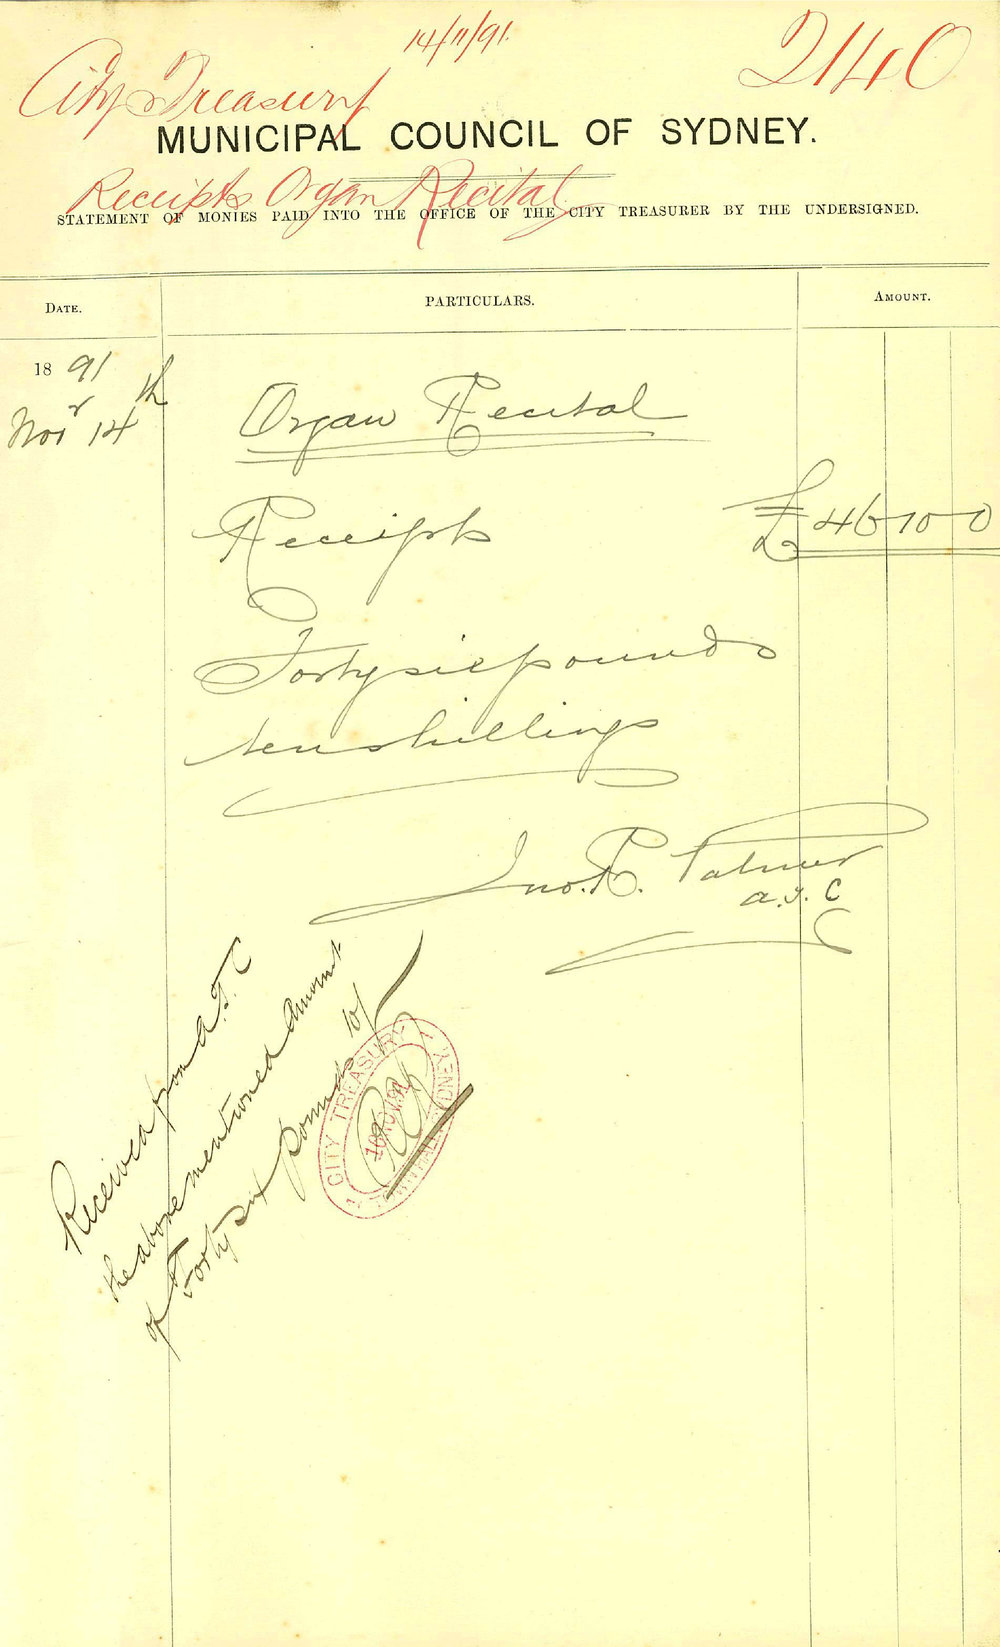 14/11/91.
2140
City Treasury
MUNICIPAL COUNCIL OF SYDNEY.
Receipts Organ Recital
STATEMENT OF MONIES PAID INTO THE OFFICE OF THE CITY TREASURER BY THE UNDERSIGNED.
DATE. PARTICULARS. AMOUNT.
1891
Novr 14th Organ Recital
Receipts £46-10-0
Forty six pounds
ten shillings
Jno. R. Palmer
A.T.C
Received from A.T.C
the above mentioned amount
of Forty six pounds 10/
CITY TREASURY
16 NOV. 91
TOWN HALL SYDNEY